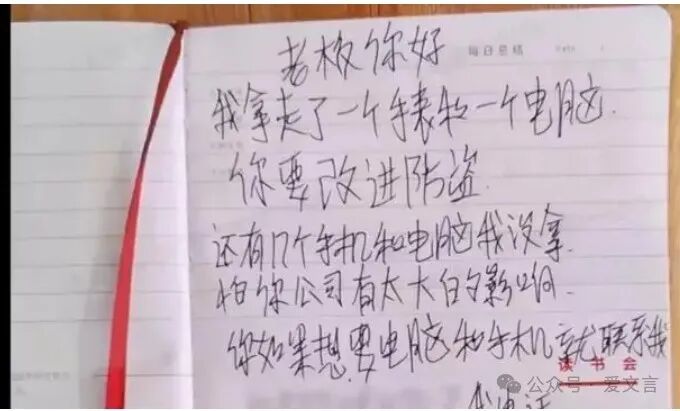 每日总结 Date
老板你好
我拿走了一个手表和一个电脑.
你要改进防盗.
还有几个手机和电脑我没拿.
怕你公司有太大的影响.
你如果想要电脑和手机就联系我
读书会
公众号·爱文言